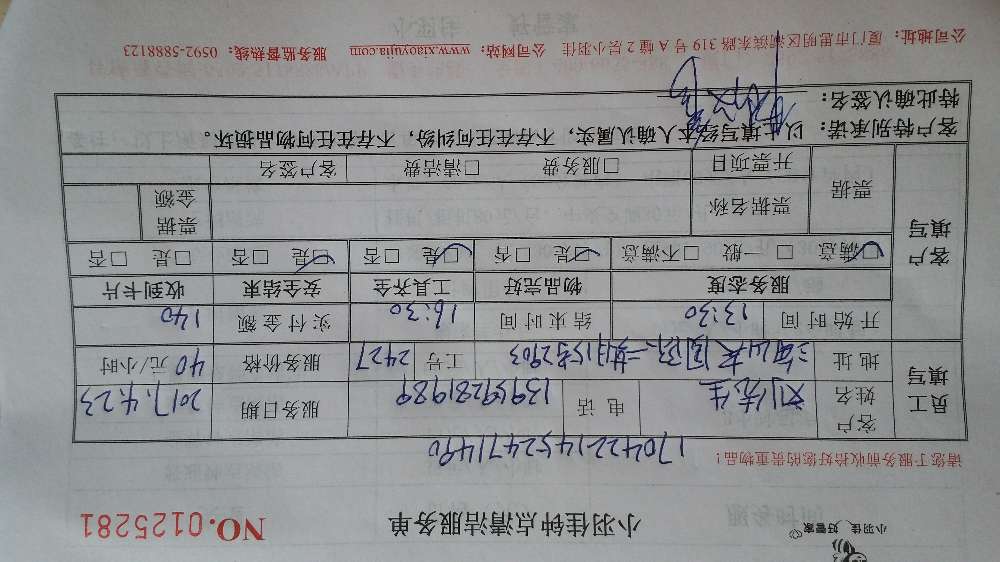 小羽佳 好管家
小羽佳钟点清洁服务单
NO.0125281
请您于服务前收拾好您的贵重物品!
1704221452471490
员工填写
客户姓名 刘先生 电话 13959281989 服务日期 2017.4.23
地址 工号 2427 服务价格 40元/小时
开始时间 13:30 结束时间 16:30 实付金额 140
客户填写
服务态度 物品完好 工具齐全 安全结束 收到卡片
☑满意 □一般 □不满意 ☑是 □否 ☑是 □否 ☑是 □否 □是 □否
票据 票据名称 票据金额
开票项目 □服务费 □清洁费 □客户签名
客户特别承诺:以上填写经本人确认属实,不存在任何纠纷,不存在任何物品损坏。
特此确认签名:
公司地址:厦门市思明区湖滨东路319号A幢2层小羽佳 公司网站:www.xiaoyujia.com 服务监督热线:0592-5888123